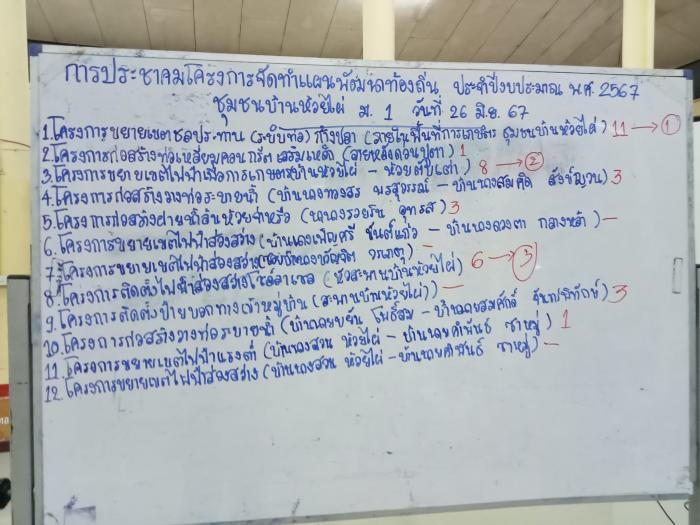 การประชาคมโครงการจัดทำแผนพัฒนาท้องถิ่น ประจำปีงบประมาณ พ.ศ. 2567
ชุมชนบ้านห้วยไผ่ ม. 1 วันที่ 26 มิ.ย. 67
1. โครงการขยายเขตชลประทาน (ระบบท่อ) (ภายในพื้นที่การเกษตร ชุมชนบ้านห้วยไผ่) 11 → 1
2. โครงการก่อสร้างท่อเหลี่ยมคอนกรีตเสริมเหล็ก (สายหลังดอนปู่ตา) 1
3. โครงการขยายเขตไฟฟ้าเพื่อการเกษตร (บ้านห้วยไผ่ - ห้วยตาปู่เต่า) 8 → 2
4. โครงการก่อสร้างวางท่อระบายน้ำ (บ้านนางทองสร พรสุวรรณ์ - บ้านนางสมคิด) 3
5. โครงการก่อสร้างฝายน้ำล้นห้วย (นานางรอยริน อุทรส) 3
6. โครงการขยายเขตไฟฟ้าส่องสว่าง (บ้านนางเพ็ญศรี ขันแก้ว - บ้านนางดวงตา กลางหล้า) -
7. โครงการขยายเขตไฟฟ้าส่องสว่าง -
8. โครงการติดตั้งไฟฟ้าส่องสว่างโซล่าเซล (หัวสะพานบ้านห้วยไผ่) 6 → 3
9. โครงการติดตั้งป้ายบอกทางเข้าหมู่บ้าน (สะพานบ้านห้วยไผ่) -
10. โครงการก่อสร้างวางท่อระบายน้ำ (บ้านนายขยัน โพธิ์สม - บ้านนายสมศักดิ์ จันทปทักษ์) 3
11. โครงการขยายเขตไฟฟ้าแรงต่ำ (บ้านนางสวน ห้วยไผ่ - บ้านนายคำพันธ์ ชาหมู่) 1
12. โครงการขยายเขตไฟฟ้าส่องสว่าง (บ้านนางสวน ห้วยไผ่ - บ้านนายคำพันธ์ ชาหมู่) -